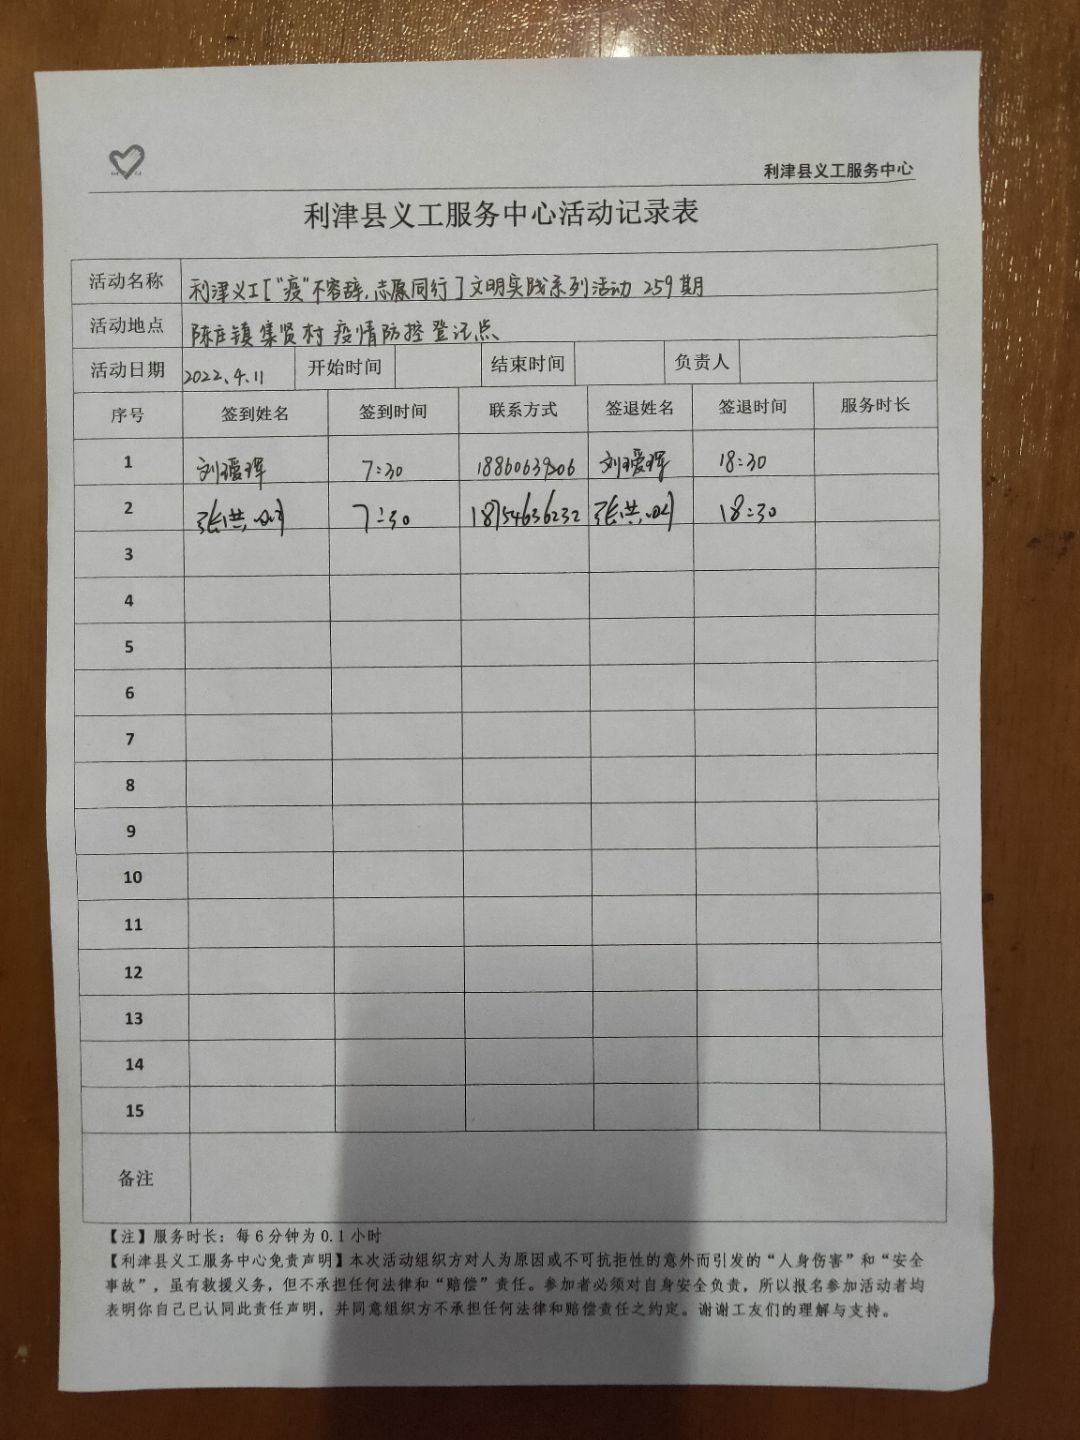 利津县义工服务中心
利津县义工服务中心活动记录表
活动名称 利津义工["疫"不容辞,志愿同行]文明实践系列活动 259期
活动地点 陈庄镇集贤村疫情防控登记点
活动日期 2022.4.11 开始时间 结束时间 负责人
序号 签到姓名 签到时间 联系方式 签退姓名 签退时间 服务时长
1 刘瑷珲 7:30 刘瑷珲 18:30
2 7:30 18754636232 18:30
3
4
5
6
7
8
9
10
11
12
13
14
15
备注
【注】服务时长：每6分钟为0.1小时
【利津县义工服务中心免责声明】本次活动组织方对人为原因或不可抗拒性的意外而引发的“人身伤害”和“安全
事故”，虽有救援义务，但不承担任何法律和“赔偿”责任。参加者必须对自身安全负责，所以报名参加活动者均
表明你自己已认同此责任声明，并同意组织方不承担任何法律和赔偿责任之约定。谢谢工友们的理解与支持。